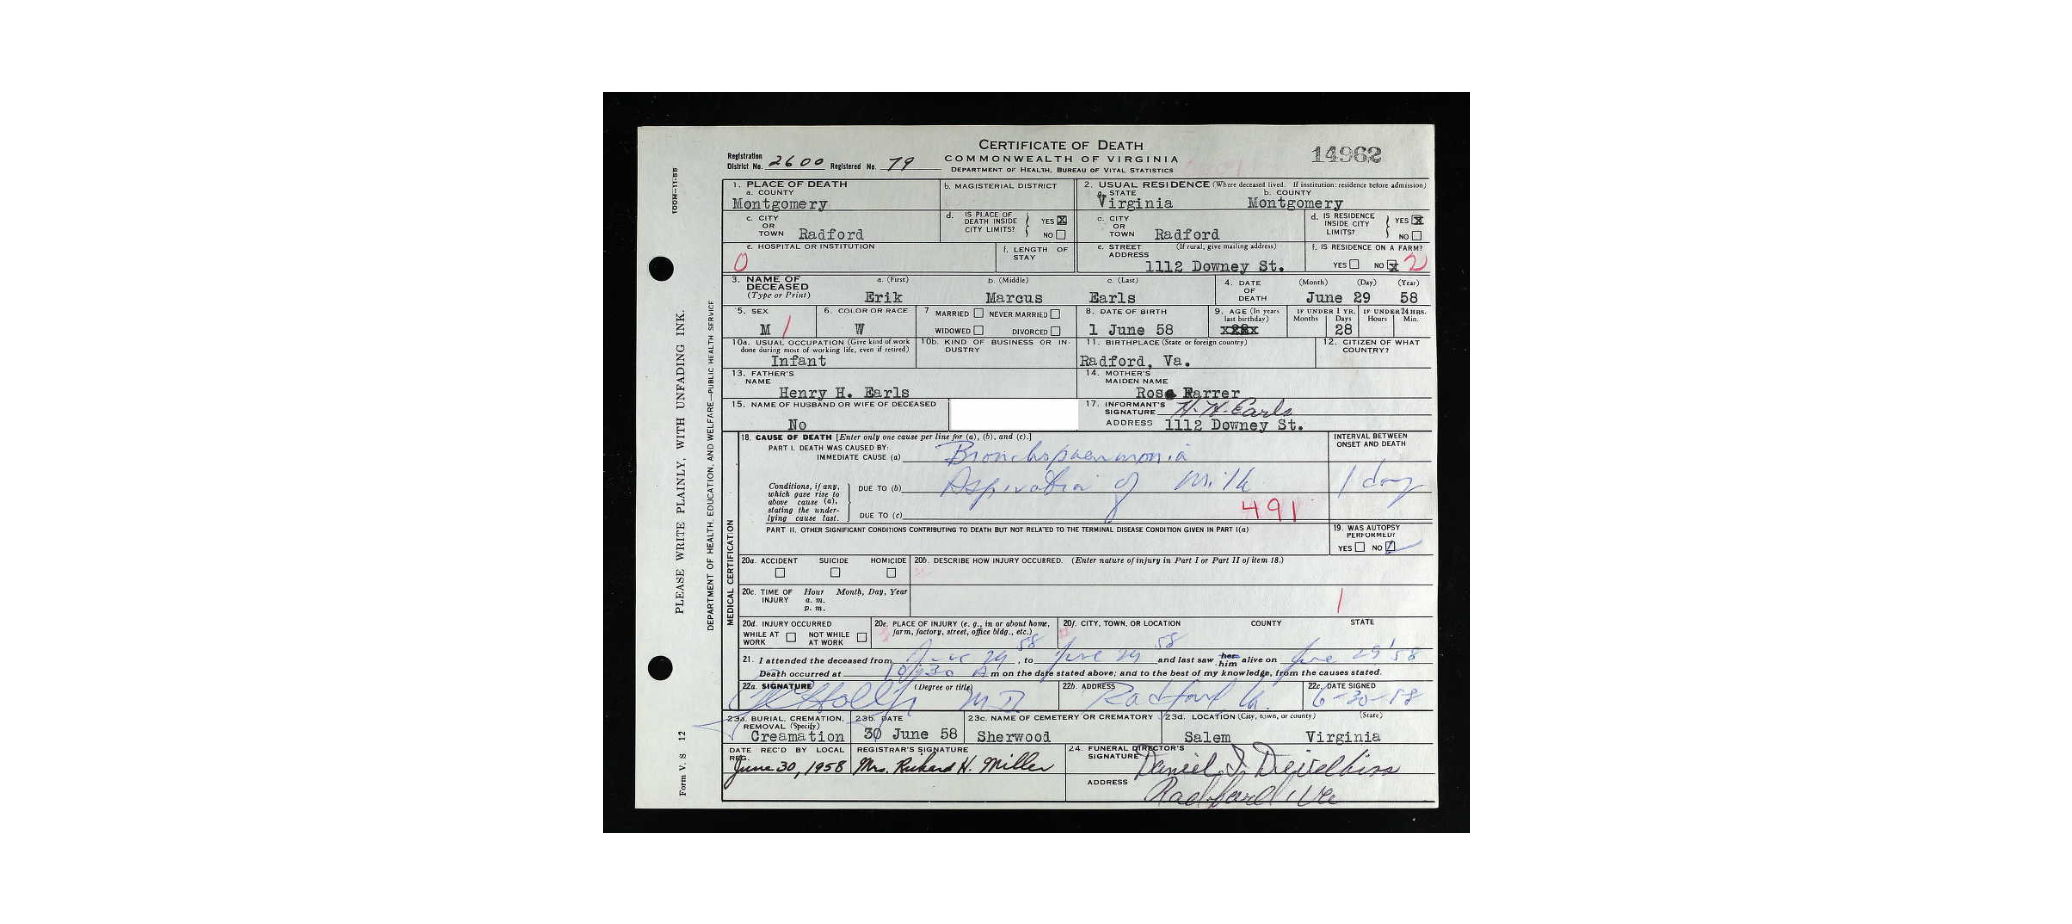 CERTIFICATE OF DEATH
COMMONWEALTH OF VIRGINIA
DEPARTMENT OF HEALTH, BUREAU OF VITAL STATISTICS
14962
Registration District No. 2600 Registered No. 79
1. PLACE OF DEATH
a. COUNTY
Montgomery
b. MAGISTERIAL DISTRICT
2. USUAL RESIDENCE (Where deceased lived. If institution: residence before admission)
a. STATE b. COUNTY
Virginia Montgomery
c. CITY OR TOWN Radford
d. IS PLACE OF DEATH INSIDE CITY LIMITS? YES X NO
c. CITY OR TOWN Radford
d. IS RESIDENCE INSIDE CITY LIMITS? YES X NO
e. HOSPITAL OR INSTITUTION
0
f. LENGTH OF STAY
e. STREET ADDRESS (If rural, give mailing address)
1112 Downey St.
f. IS RESIDENCE ON A FARM?
YES NO X 2
3. NAME OF DECEASED (Type or Print)
a. (First) b. (Middle) c. (Last)
Erik Marcus Earls
4. DATE OF DEATH (Month) (Day) (Year)
June 29 58
5. SEX
M 1
6. COLOR OR RACE
W
7 MARRIED NEVER MARRIED
WIDOWED DIVORCED
8. DATE OF BIRTH
1 June 58
9. AGE (In years last birthday)
IF UNDER 1 YR. IF UNDER 24 HRS.
Months Days Hours Min.
28
10a. USUAL OCCUPATION (Give kind of work done during most of working life, even if retired)
Infant
10b. KIND OF BUSINESS OR INDUSTRY
11. BIRTHPLACE (State or foreign country)
Radford, Va.
12. CITIZEN OF WHAT COUNTRY?
13. FATHER'S NAME
Henry H. Earls
14. MOTHER'S MAIDEN NAME
Rose Farrer
15. NAME OF HUSBAND OR WIFE OF DECEASED
No
17. INFORMANT'S SIGNATURE H. H. Earls
ADDRESS 1112 Downey St.
18. CAUSE OF DEATH [Enter only one cause per line for (a), (b), and (c).]
INTERVAL BETWEEN ONSET AND DEATH
PART I. DEATH WAS CAUSED BY:
IMMEDIATE CAUSE (a) Bronchopneumonia
Conditions, if any, which gave rise to above cause (a), stating the underlying cause last.
DUE TO (b) Aspiration of Milk 1 day
DUE TO (c) 491
PART II. OTHER SIGNIFICANT CONDITIONS CONTRIBUTING TO DEATH BUT NOT RELATED TO THE TERMINAL DISEASE CONDITION GIVEN IN PART I(a)
19. WAS AUTOPSY PERFORMED?
YES NO
20a. ACCIDENT SUICIDE HOMICIDE
20b. DESCRIBE HOW INJURY OCCURRED. (Enter nature of injury in Part I or Part II of item 18.)
20c. TIME OF INJURY Hour Month, Day, Year
a. m.
p. m.
1
20d. INJURY OCCURRED
WHILE AT WORK NOT WHILE AT WORK
20e. PLACE OF INJURY (e. g., in or about home, farm, factory, street, office bldg., etc.)
20f. CITY, TOWN, OR LOCATION COUNTY STATE
21. I attended the deceased from June 29 58, to June 29 58 and last saw her him alive on June 29 '58
Death occurred at 10:30 A m on the date stated above; and to the best of my knowledge, from the causes stated.
22a. SIGNATURE (Degree or title)
M D
22b. ADDRESS
Radford Va.
22c. DATE SIGNED
6-30-58
23a. BURIAL, CREMATION, REMOVAL (Specify)
Creamation
23b. DATE
30 June 58
23c. NAME OF CEMETERY OR CREMATORY
Sherwood
23d. LOCATION (City, town, or county) (State)
Salem Virginia
DATE REC'D BY LOCAL REG.
June 30, 1958
REGISTRAR'S SIGNATURE
Mrs. Richard H. Miller
24. FUNERAL DIRECTOR'S SIGNATURE Daniel
ADDRESS Radford, Va
PLEASE WRITE PLAINLY, WITH UNFADING INK.
DEPARTMENT OF HEALTH, EDUCATION, AND WELFARE—PUBLIC HEALTH SERVICE
MEDICAL CERTIFICATION
Form V. S 12